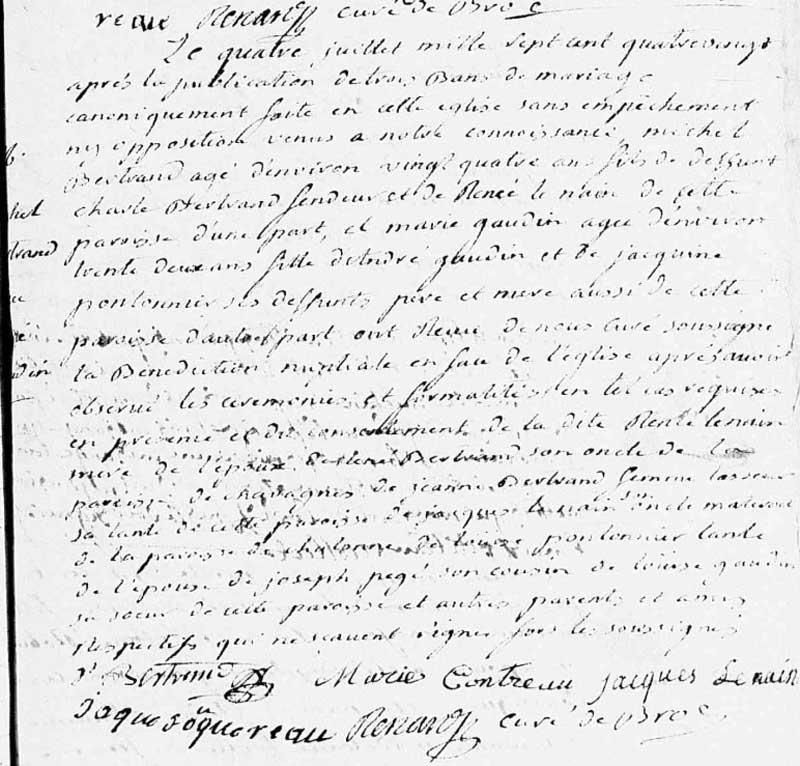 reau Renard curé de Broc
Le quatre juillet mille sept cent quatrevingt
aprés la publication de trois Bans de mariage
canoniquement faite en cette eglise sans empêchement
ny opposition venus a notre connoissance, michel
Bertrand agé d'environ vingt quatre ans fils de deffunt
charle Bertrand fendeur et de Renée le nain de cette
paroisse d'une part, et marie gaudin agee d'environ
trente deux ans fille d'André gaudin et de jacquine
pontonnier ses deffunts pere et mere aussi de cette
paroisse d'autre part ont Recue de nous Curé soussigne
la Benediction nuptiale en face de l'église aprés avoir
observé les ceremonies et formalités en tel cas requises
en presence et du consentement de la dite Renée lenain
mere de l'epoux de Bertrand son oncle de la
paroisse de chavagnes de jeanne Bertrand femme
sa tante de cette paroisse de jacques le nain son oncle maternel
de la paroisse de chalonne de louise pontonnier tante
de l'épouse de joseph pegé son cousin de louise gaudin
sa soeur de cette paroisse et autres parents et amis
respectifs qui ne scavent signer fors les soussignés
Bertrand Marie Contreau jacques Lenain
reau Renard curé de Broc
hel
trand
din